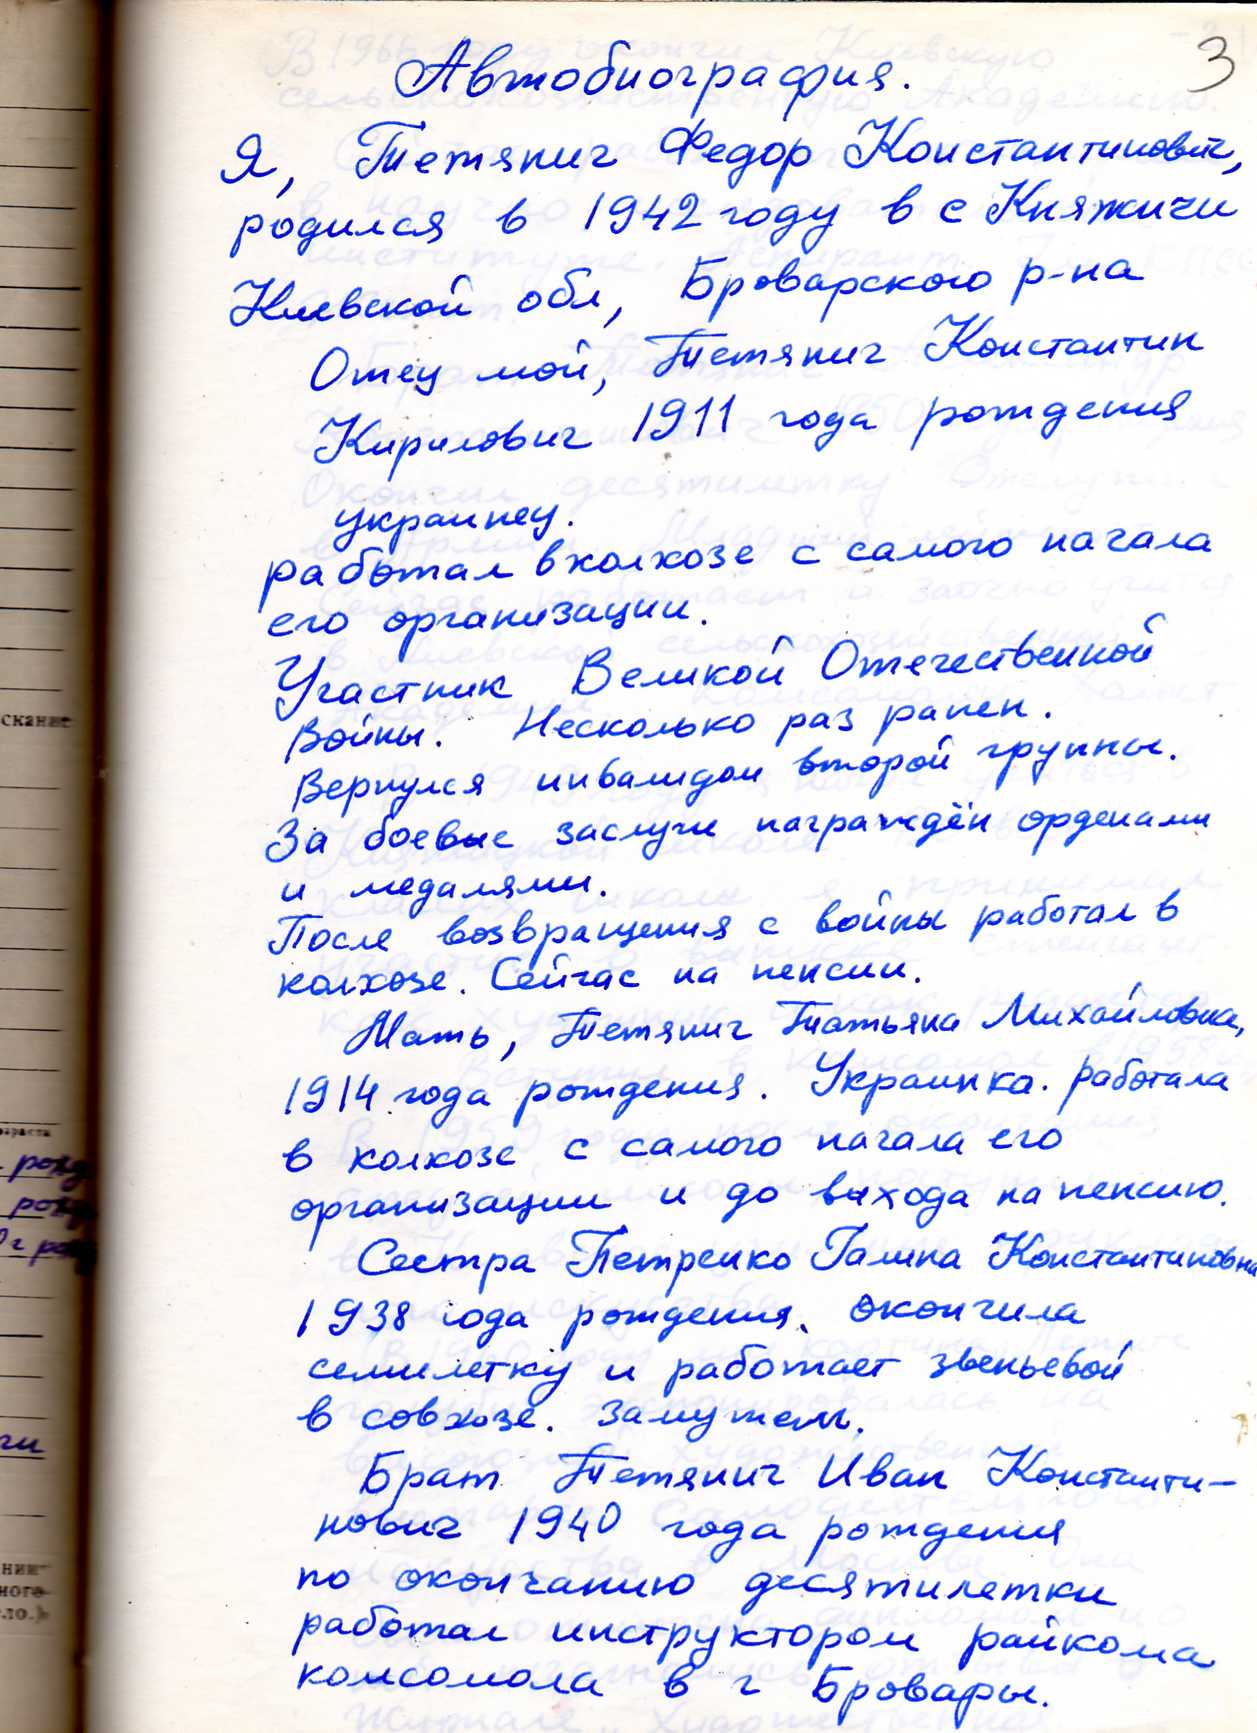 3
Автобиография.
Я, Тетянич Федор Константинович,
родился в 1942 году в с Княжичи
Киевской обл, Броварского р-на
Отец мой, Тетянич Константин
Кирилович 1911 года рождения
украинец.
работал в колхозе с самого начала
его организации.
Участник Великой Отечественной
Войны. Несколько раз ранен.
Вернулся инвалидом второй группы.
За боевые заслуги награждён орденами
и медалями.
После возвращения с войны работал в
колхозе. Сейчас на пенсии.
Мать, Тетянич Татьяна Михайловна,
1914 года рождения. Украинка. работала
в колхозе с самого начала его
организации и до выхода на пенсию.
Сестра Петренко Галина Константиновна
1938 года рождения. окончила
семилетку и работает звеньевой
в совхозе. Замужем.
Брат Тетянич Иван Константи-
нович 1940 года рождения
по окончанию десятилетки
работал инструктором райкома
комсомола в г Бровары.